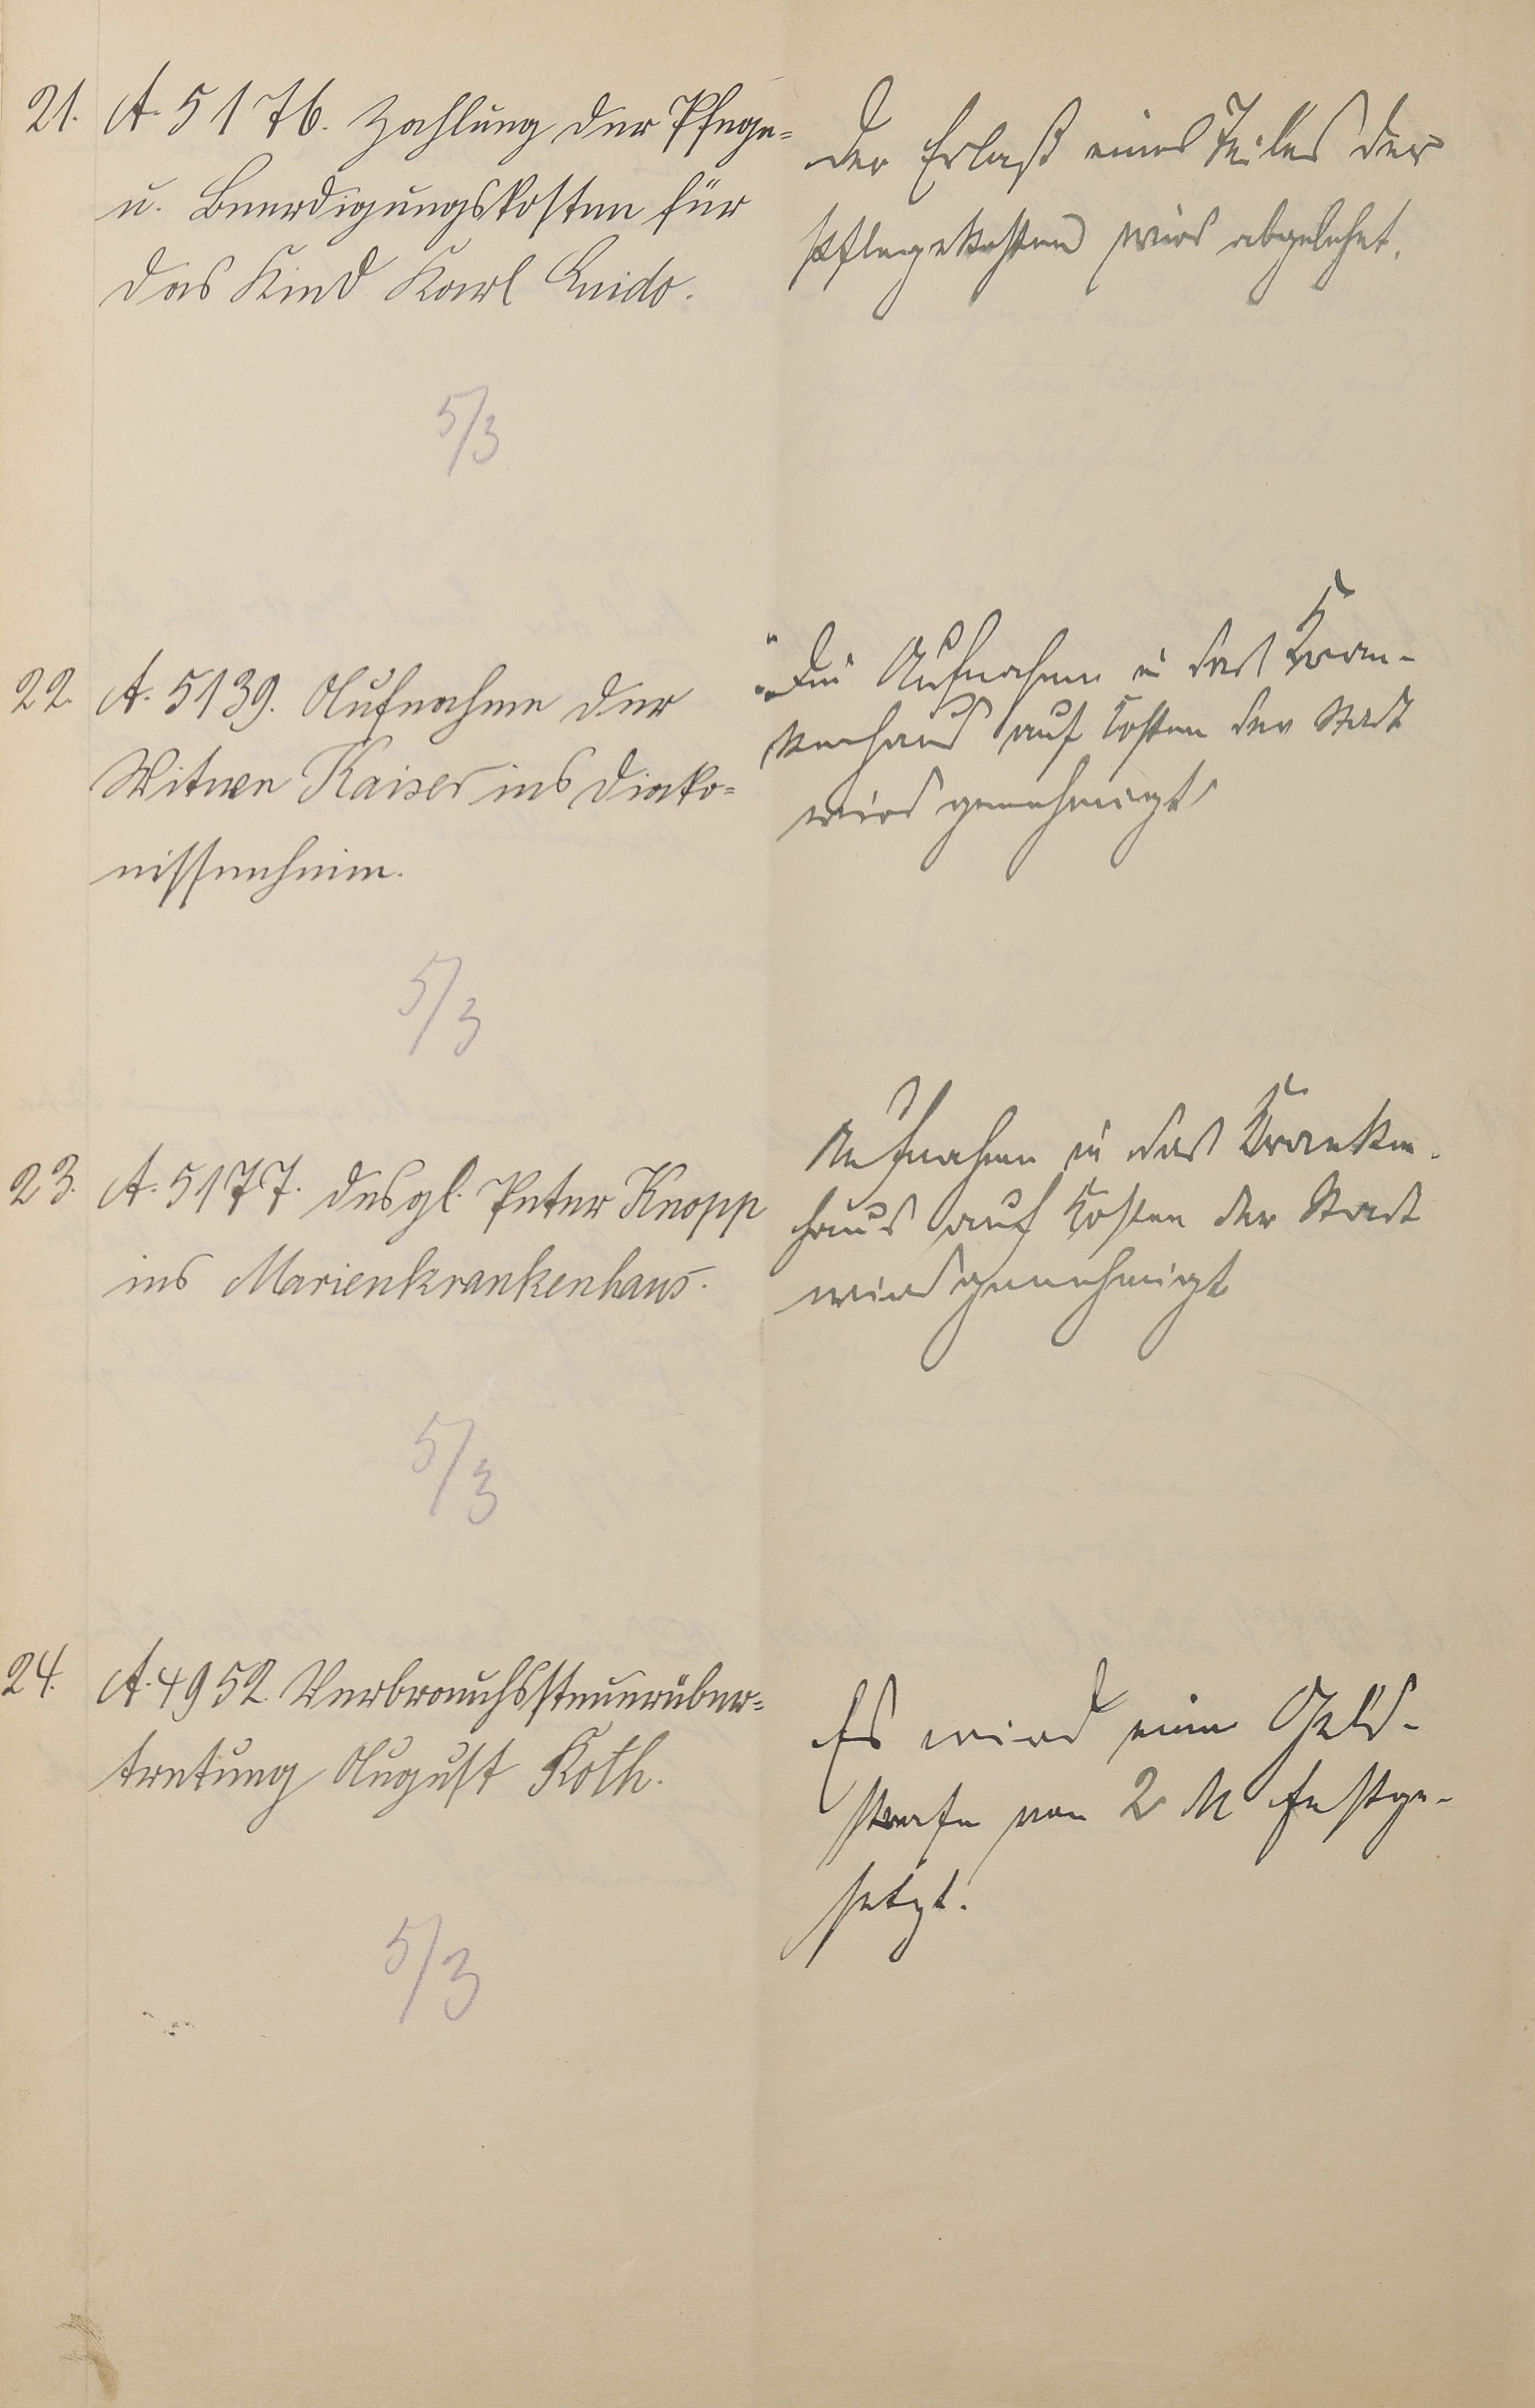 21. A. 5176. Zahlung der Pflege=
u. Beerdigungskosten für
das Kind Karl Guido.
5/3
Der Erlaß eines Teiles der
Pflegekosten wird abgelehnt.
22. A. 5139. Aufnahme der
Witwe Kaiser ins Diako=
nissenheim.
5/3
Die Aufnahme in das Kran-
kenhaus auf Kosten der Stadt
wird genehmigt
23. A. 5177. desgl. Peter Knopp
ins Marienkrankenhaus.
5/3
Aufnahme in das Kranken-
haus auf Kosten der Stadt
wird genehmigt
24. A. 4952. Verbrauchssteuerüber=
tretung August Koth.
5/3
Es wird eine Geld-
strafe von 2 M festge-
setzt.